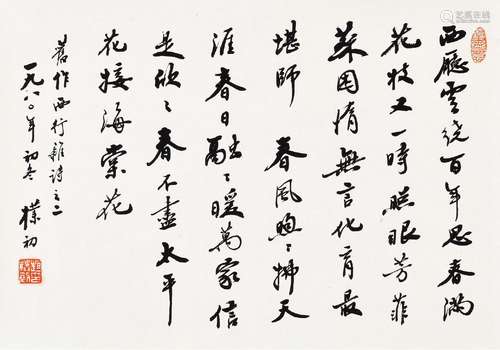 西廳雲繞百年思春滿
花枝又一時照眼芳菲
情無言化育最
堪師 春風煦〻拂天
涯春日融〻暖萬家信
是欣〻春不盡太平
花接海棠花
舊作西行雜詩之二
一九八〇年初冬 樸初